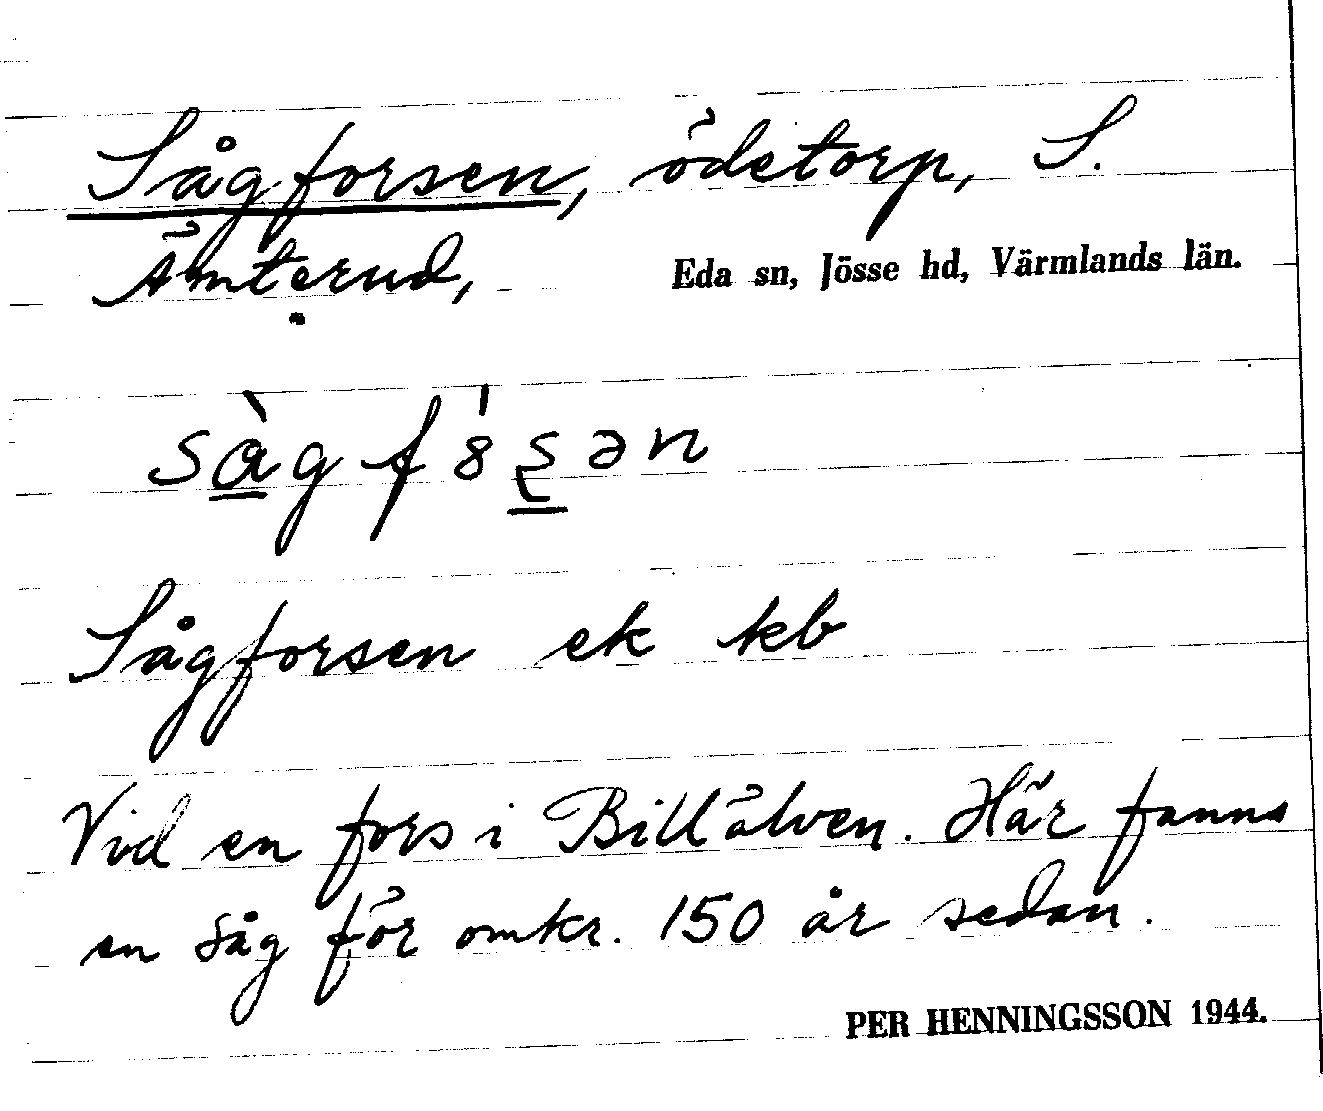 Sågforsen, ödetorp, S.
Ämterud, Eda sn, Jösse hd, Värmlands län.
sàgf8́ʂən
Sågforsen ek kb
Vid en fors i Billälven. Här fanns
en såg för omkr. 150 år sedan.
PER HENNINGSSON 1944.